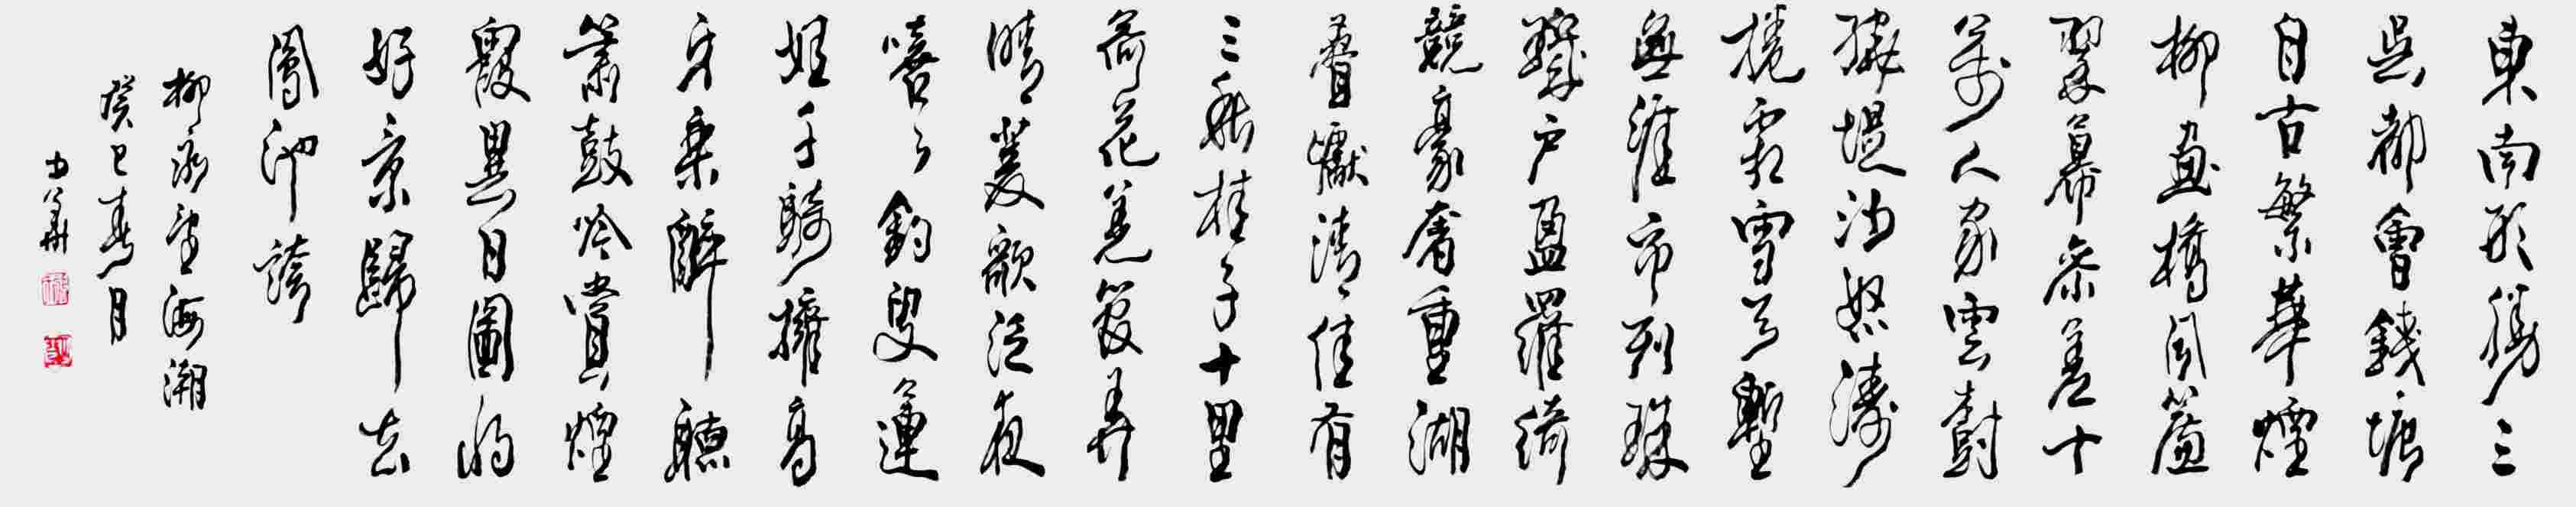 東南形勝三
吳都會錢塘
自古繁華煙
柳畫橋風簾
翠幕參差十
萬人家雲樹
繞堤沙怒濤
捲霜雪天塹
無涯市列珠
璣戶盈羅綺
競豪奢重湖
疊巘清佳有
三秋桂子十里
荷花羌管弄
晴菱歌泛夜
嘻々釣叟蓮
娃千騎擁高
牙乘醉聽
簫鼓吟賞煙
霞異日圖將
好景歸去
鳳池誇
柳永望海潮
癸巳春月
華